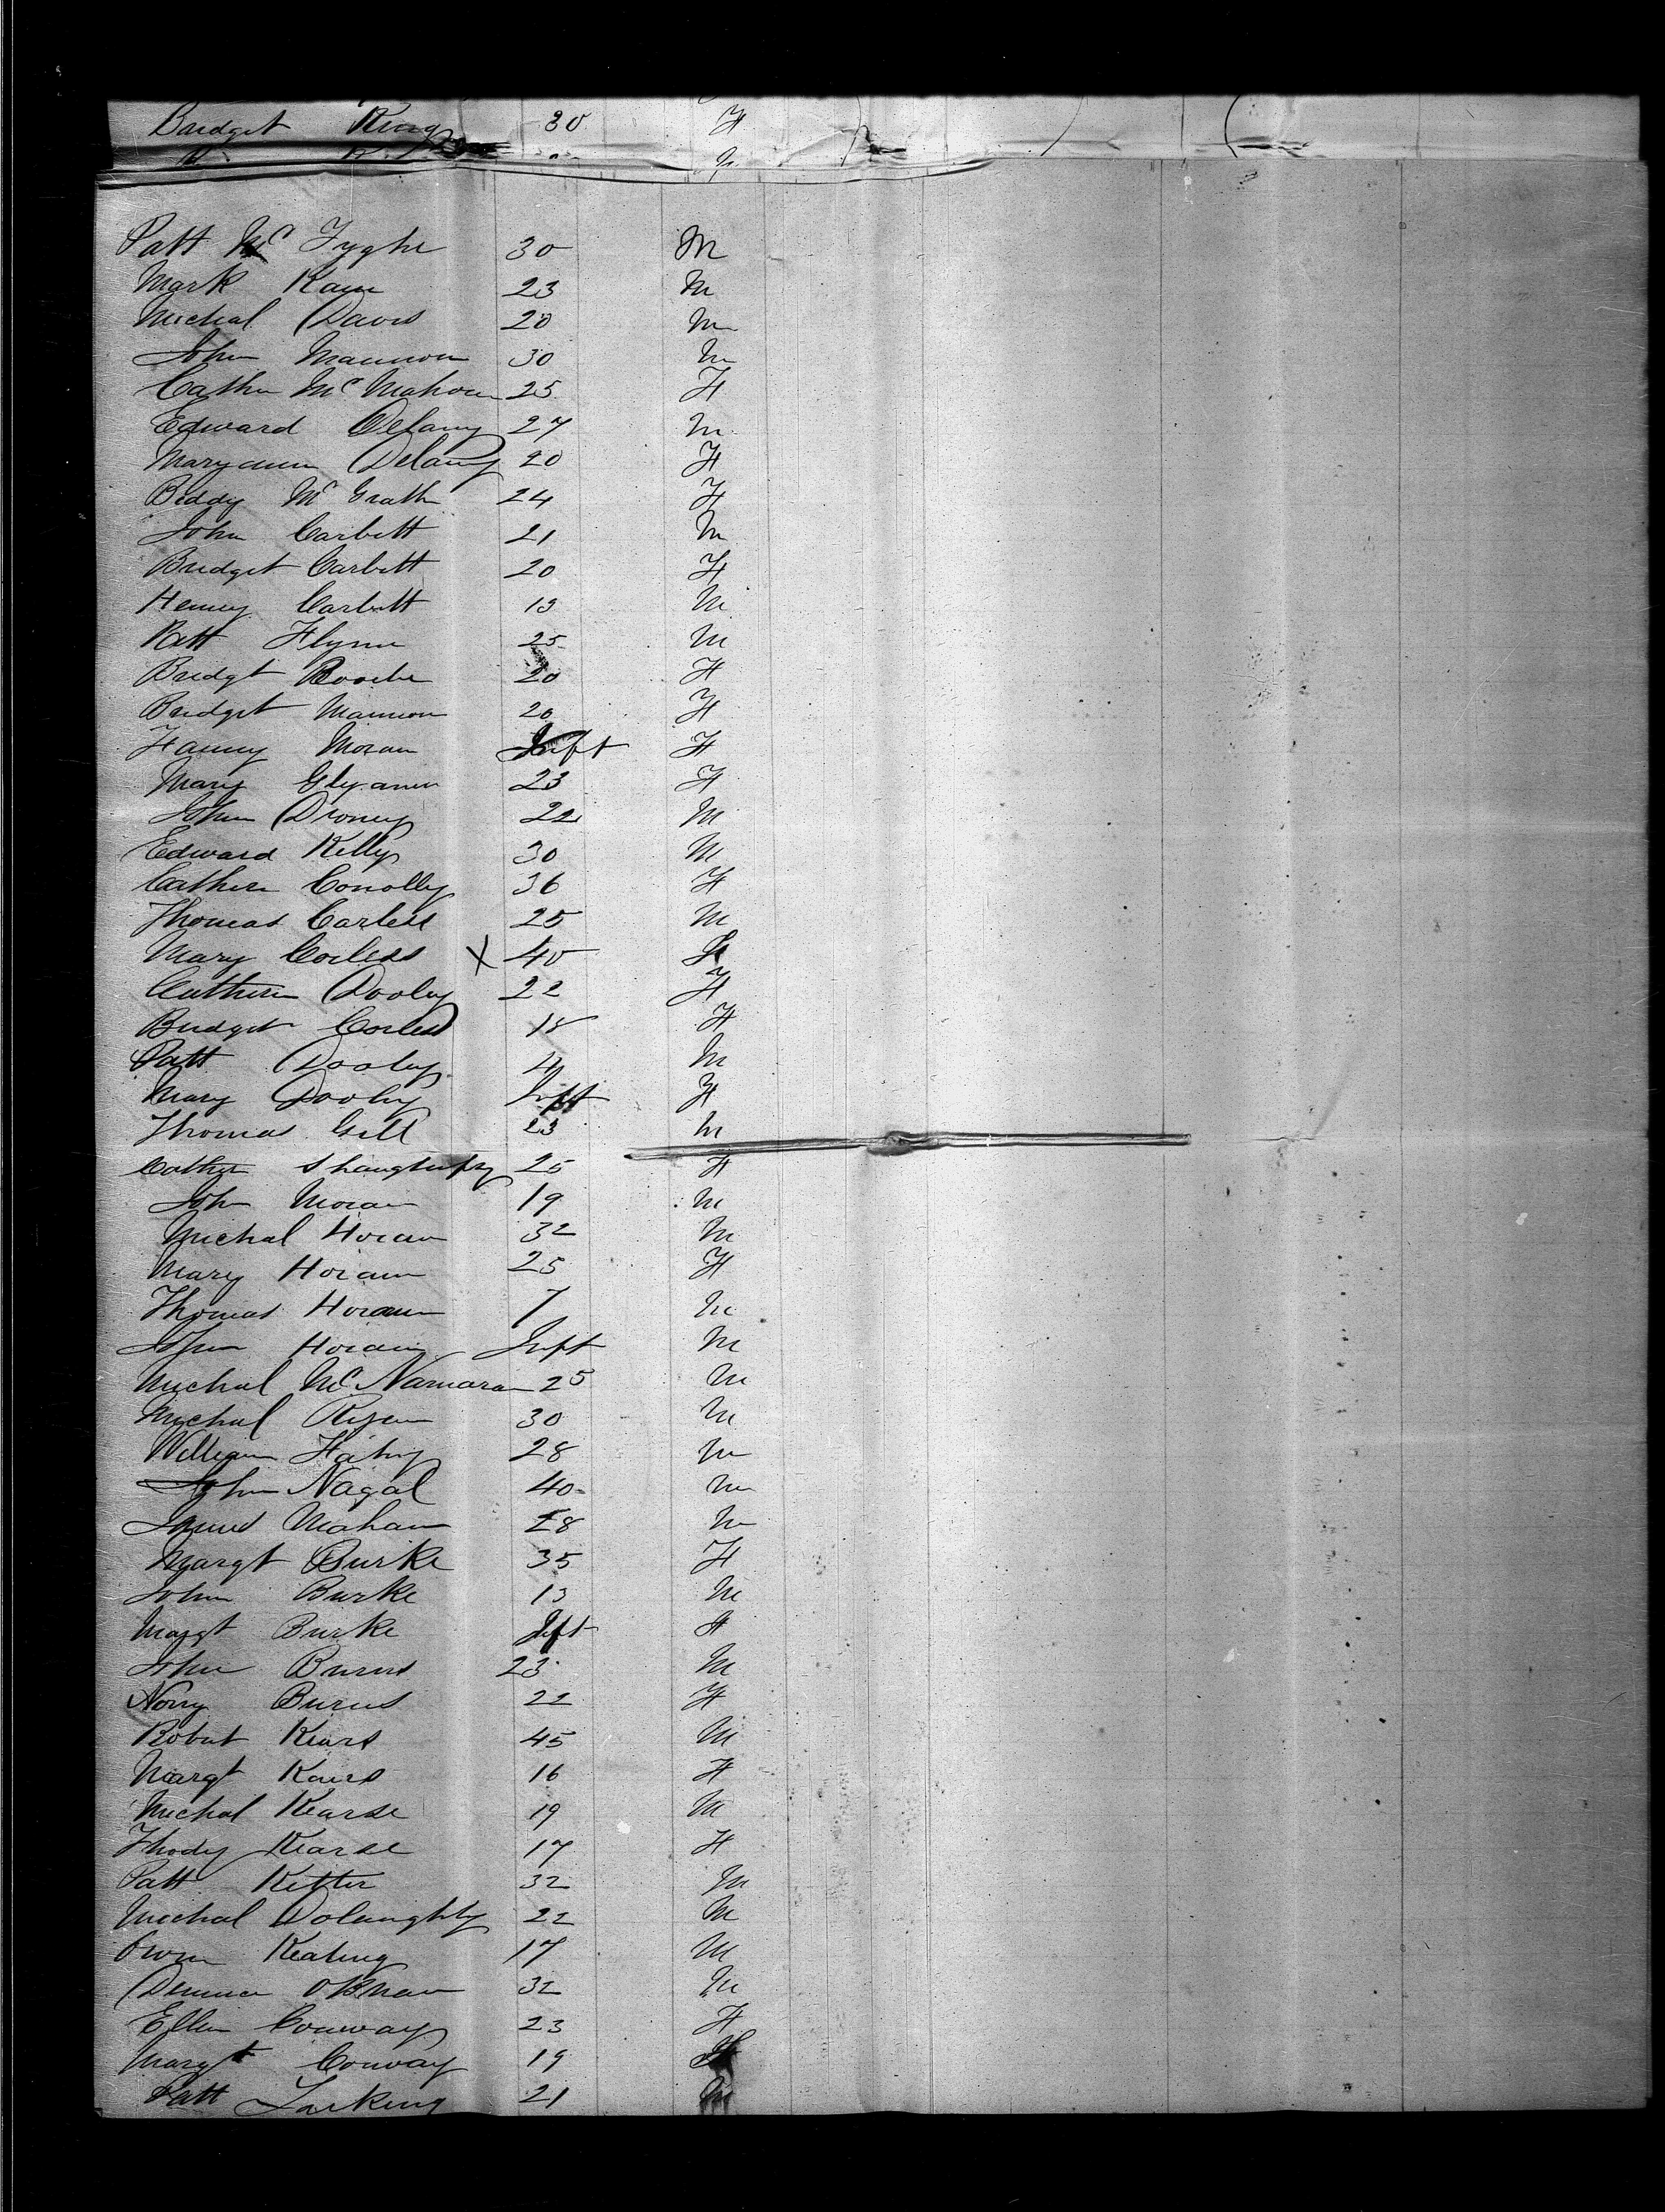 Bridget King 30 F
Patt Mc Tyghe 30 M
Mark Kain 23 M
Michal Davis 20 M
John Mannion 30 M
Cathn McMahon 25 F
Edward Delany 27 M
Maryann Delany 20 F
Biddy McGrath 24 F
John Carbett 21 M
Bridget Carbett 20 F
Henry Carbett 19 M
Patt Flynn 25 M
Bridgt Roache 20 F
Bridget Mannion 20 F
Fanny Moran Inft F
Mary Glyann 23 F
John Droney 22 M
Edward Kelly 30 M
Cathern Conolly 36 F
Thomas Carless 25 M
Mary Corless X 40 F
Cuthern Dooley 22 F
Bridget Corless 18 F
Patt Dooley 4 M
Mary Dooly Inft F
Thomas Gill 23 M
Cathn Shaughnfsy 25 F
John Moran 19 M
Michal Horan 32 M
Mary Horan 25 F
Thomas Horan 7 M
John Horan Inft M
Michal McNamara 25 M
Mychal Ryan 30 M
William Fahy 28 M
John Nagal 40 M
James Mahan 28 M
Margt Burke 35 F
John Burke 13 M
Margt Burke Inft F
John Burns 23 M
Nony Burns 22 F
Robert Kears 45 M
Margt Kears 16 F
Michal Kearse 19 M
Thody Kearse 17 F
Patt Kitter 32 M
Michal Dolaughty 22 M
Owen Keating 17 M
Dennis OBrian 32 M
Ellen Conway 23 F
Margt Conway 19 F
Patt Larking 21 M